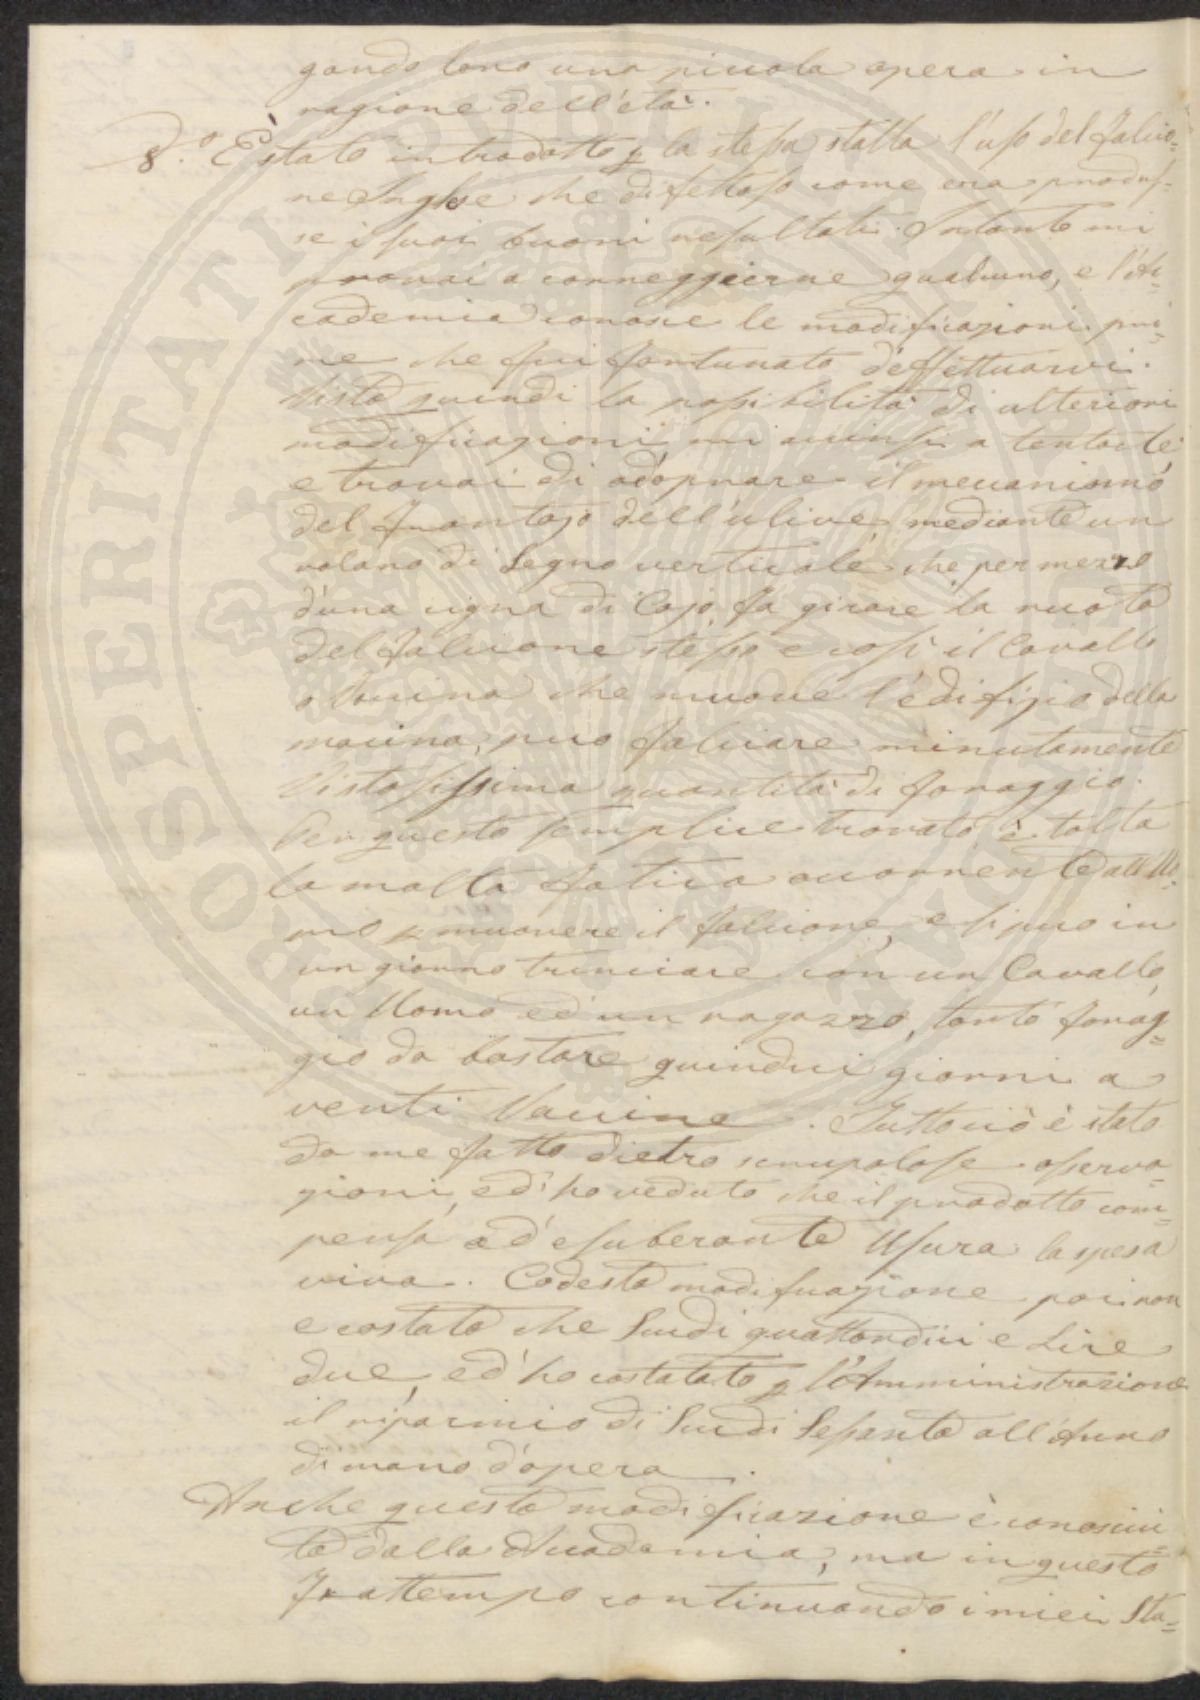 gando loro una piccola opera in
ragione dell'età.
8.° È stato introdotto p la stessa stalla l'uso del Falcio=
ne Inglese che difettoso come era produs=
se i suoi buoni resultati. Intanto mi
provai a correggierne qualcuno, e l'Ac=
cademia conosce le modificazioni pri=
me che fui fortunato d'effettuarvi.
Vista quindi la possibilità di ulteriori
modificazioni mi accinsi a tentarle
e trovai di adoprare il mecanismo
del Frantojo dell'ulive, mediante un
volano di Legno verticale che per mezzo
d'una cigna di Cojo, fa girare la ruota
del Falcione stesso e così il Cavallo
o Vaccina che muove l'edifizio della
macina, può falciare minutamente
Vistosissima quantità di foraggio.
Per questo semplice trovato è tolta
la molta fatica occorrente all'Uo=
mo p muovere il falcione, e si può in
un giorno trinciare con un Cavallo,
un Uomo ed un ragazzo, tanto forag=
gio da bastare quindici giorni a
venti Vaccine. Tutto ciò è stato
da me fatto dietro scrupolose osserva=
zioni, ed ho veduto che il prodotto com=
pensa ad esuberante Usura la spesa
viva. Codesta modificazione poi non
e costata che Scudi quattordici e Lire
due, ed ho costatato p l'Amministrazione
il risparmio di Scudi Sessanta all'Anno
di mano d'opera.
Anche questa modificazione è conosciu=
ta dalla Accademia, ma in questo
Frattempo continuando i miei Stu=
PROSPERITATI PUBLICAE